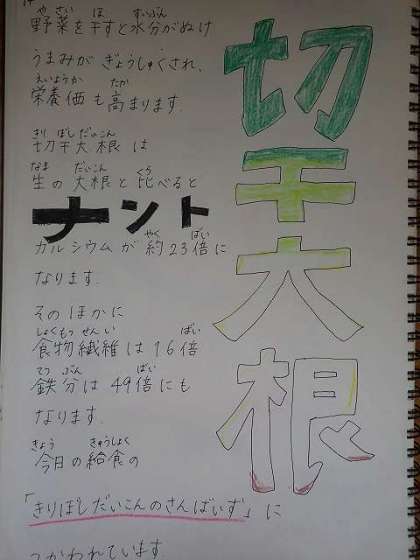 切干大根
野菜を干すと水分がぬけ
うまみがぎょうしゅくされ、
栄養価も高まります。
切干大根は
生の大根と比べると
ナント
カルシウムが約23倍に
なります。
そのほかに
食物繊維は16倍
鉄分は49倍にも
なります。
今日の給食の
「きりぼしだいこんのさんばいず」に
つかわれています